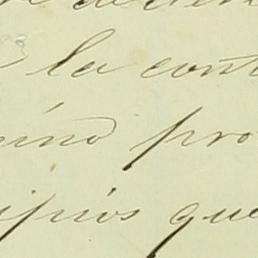 la cont
ino pro
ipios que